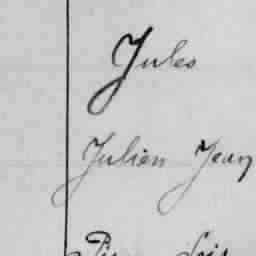 Jules
Julien Jean